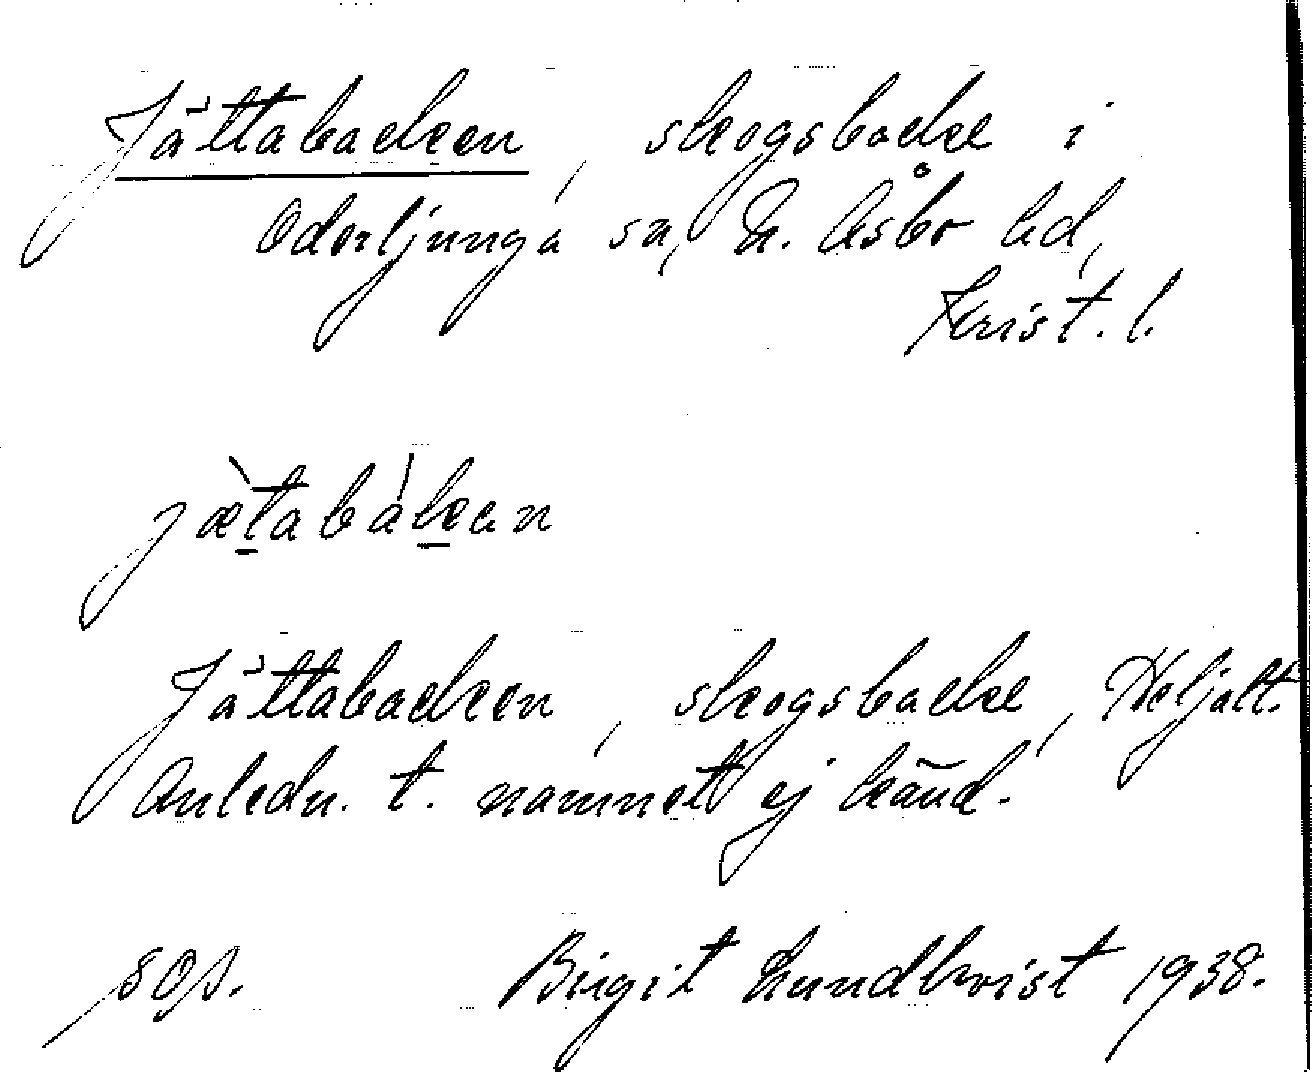 Jättabacken, skogsbacke i
Oderljunga sn, N. Åsbo hd,
Krist. l.
jætabákan
Jättabacken, skogsbacke,
Anledn. t. namnet ej känd.
Birgit Lundkvist 1938.